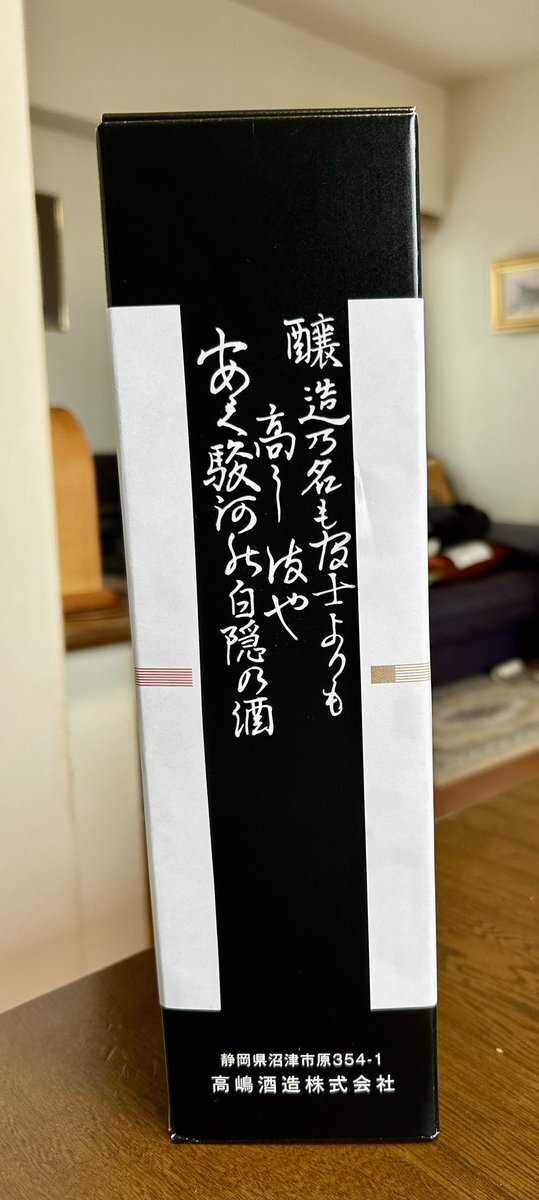 醸造乃名も冨士よりも
高し 波や
駿河能白隠乃酒
静岡県沼津市原354-1
高嶋酒造株式会社